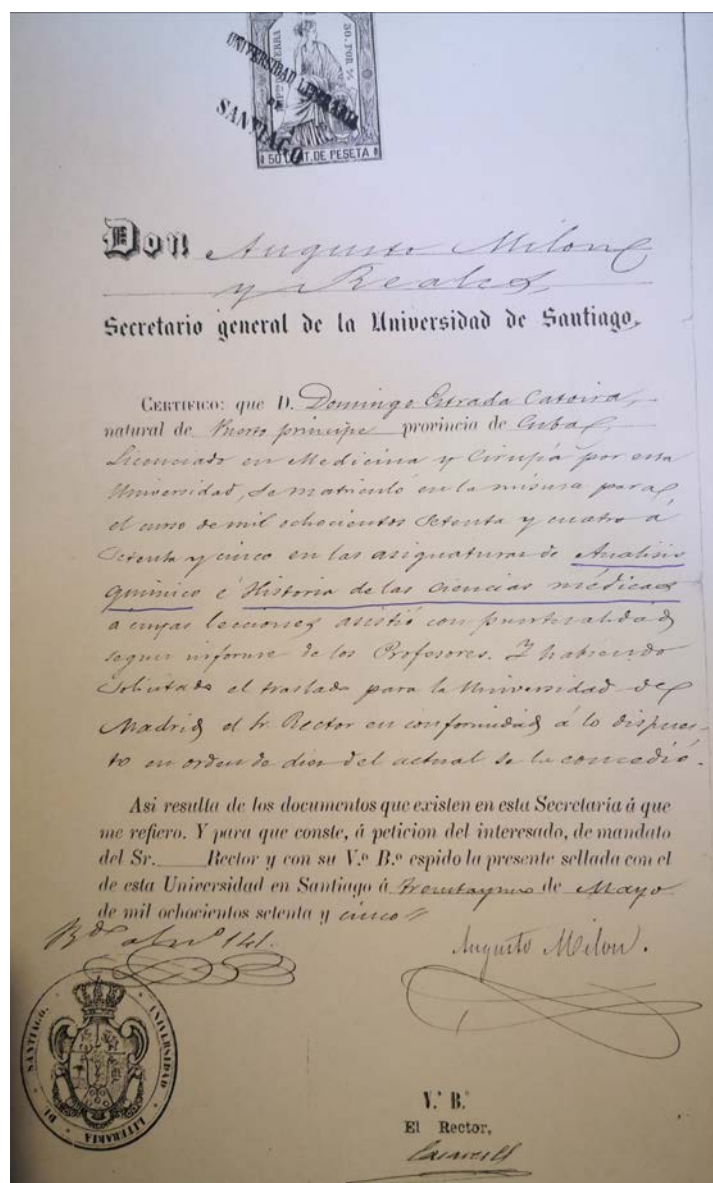 UNIVERSIDAD LITERARIA
DE
SANTIAGO
50 CENT. DE PESETA
Don Augusto Milon
y Reales,
Secretario general de la Universidad de Santiago,
CERTIFICO: que D. Domingo Estrada Catoira,
natural de Puerto principe provincia de Cuba,
Licenciado en Medicina y Cirugía por esta
Universidad, se matriculó en la misma para
el curso de mil ochocientos setenta y cuatro á
setenta y cinco en las asignaturas de Analisis
quimico é Historia de las ciencias médicas
a cuyas lecciones asistió con puntualidad
segun informe de los Profesores. Y habiendo
solicitado el traslado para la Universidad de
Madrid el Sr. Rector en conformidad á lo dispues-
to en orden de diez del actual se le concedió.
Asi resulta de los documentos que existen en esta Secretaría á que
me refiero. Y para que conste, á peticion del interesado, de mandato
del Sr. Rector y con su V.º B.º espido la presente sellada con el
de esta Universidad en Santiago á treinta y uno de Mayo
de mil ochocientos setenta y cinco
al nº 141.
Augusto Milon.
UNIVERSIDAD LITERARIA DE SANTIAGO.
V.º B.º
El Rector,